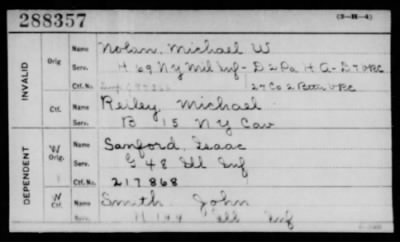 288357
(3-H-4)
INVALID
Orig
Name Nolan, Michael W
Serv. H 69 Ny Mil Inf - D 2 Pa H A - D 7 VRC
Ctf. No. 27 Co 2 Battn VRC
Ctf.
Name Reiley Michael
Serv. B 15 NY Cav
DEPENDENT
W Orig.
Name Sanford, Isaac
Serv. G 48 Ill Inf
Ctf. No. 217868
W Ctf.
Name Smith John
Serv. Ill Inf